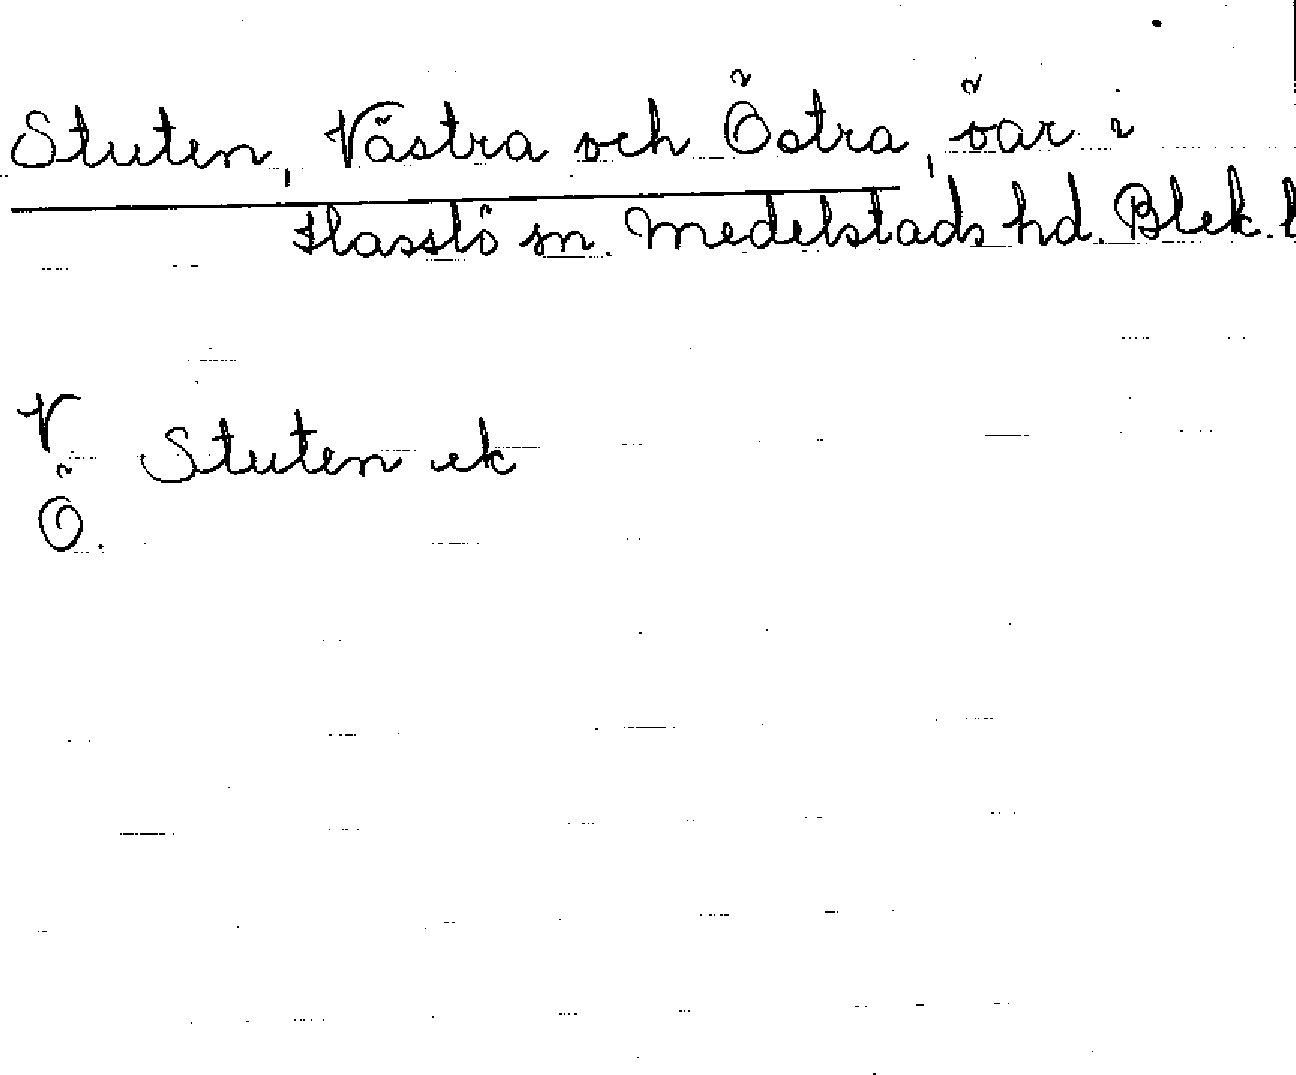 Stuten, Västra och Östra, öar i
Hasslö sn. Medelstads hd. Blek. l
V
Stuten ek
Ö.